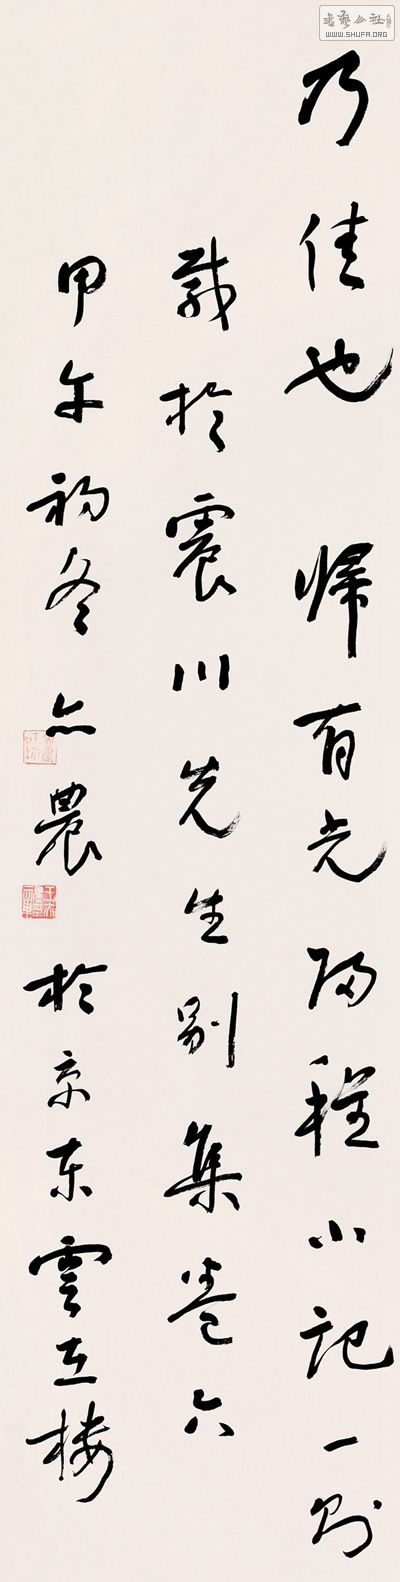 書藝公社
WWW.SHUFA.ORG
乃佳也 歸有光归程小記一則
載於震川先生別集卷六
甲午初冬亦農 於京東雲樓